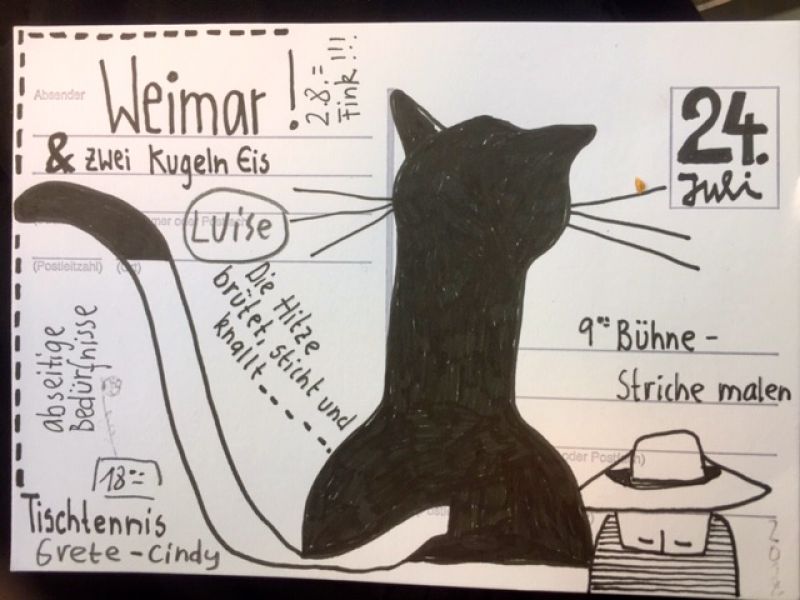 Absender
Weimar!
2.8.=
Fink!!!
& zwei Kugeln Eis
24.
Juli
Luise
(Postleitzahl) (Ort)
Die Hitze
brütet, sticht und
knallt
9°° Bühne -
Striche malen
abseitige
Bedürfnisse
18°°
Tischtennis
Grete - Cindy